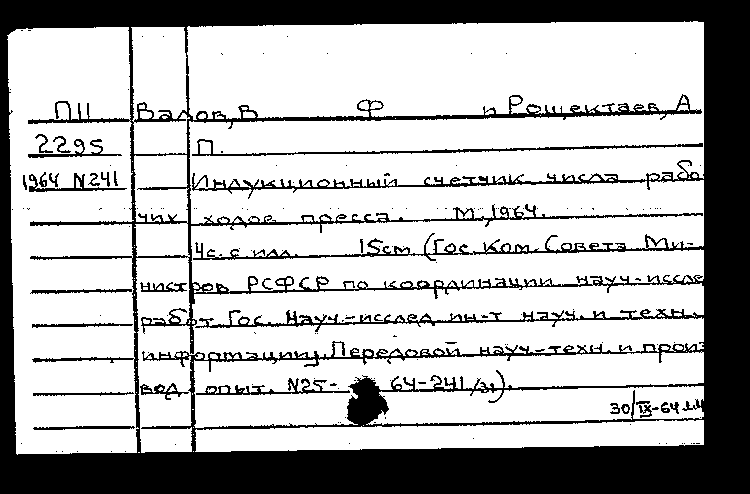 П11 Валов, В Ф и Рощектаев, А
2295 П.
1964 N241 Индукционный счетчик числа рабо
чих ходов пресса. М., 1964.
4с. с илл. 15см (Гос. Ком. Совета Ми-
нистров РСФСР по координации науч-исслед
работ Гос. Науч-исслед ин-т науч. и техн.
информации). Передовой науч-техн. и произ
вод опыт. N25- 64-241/31).
30/IX-64